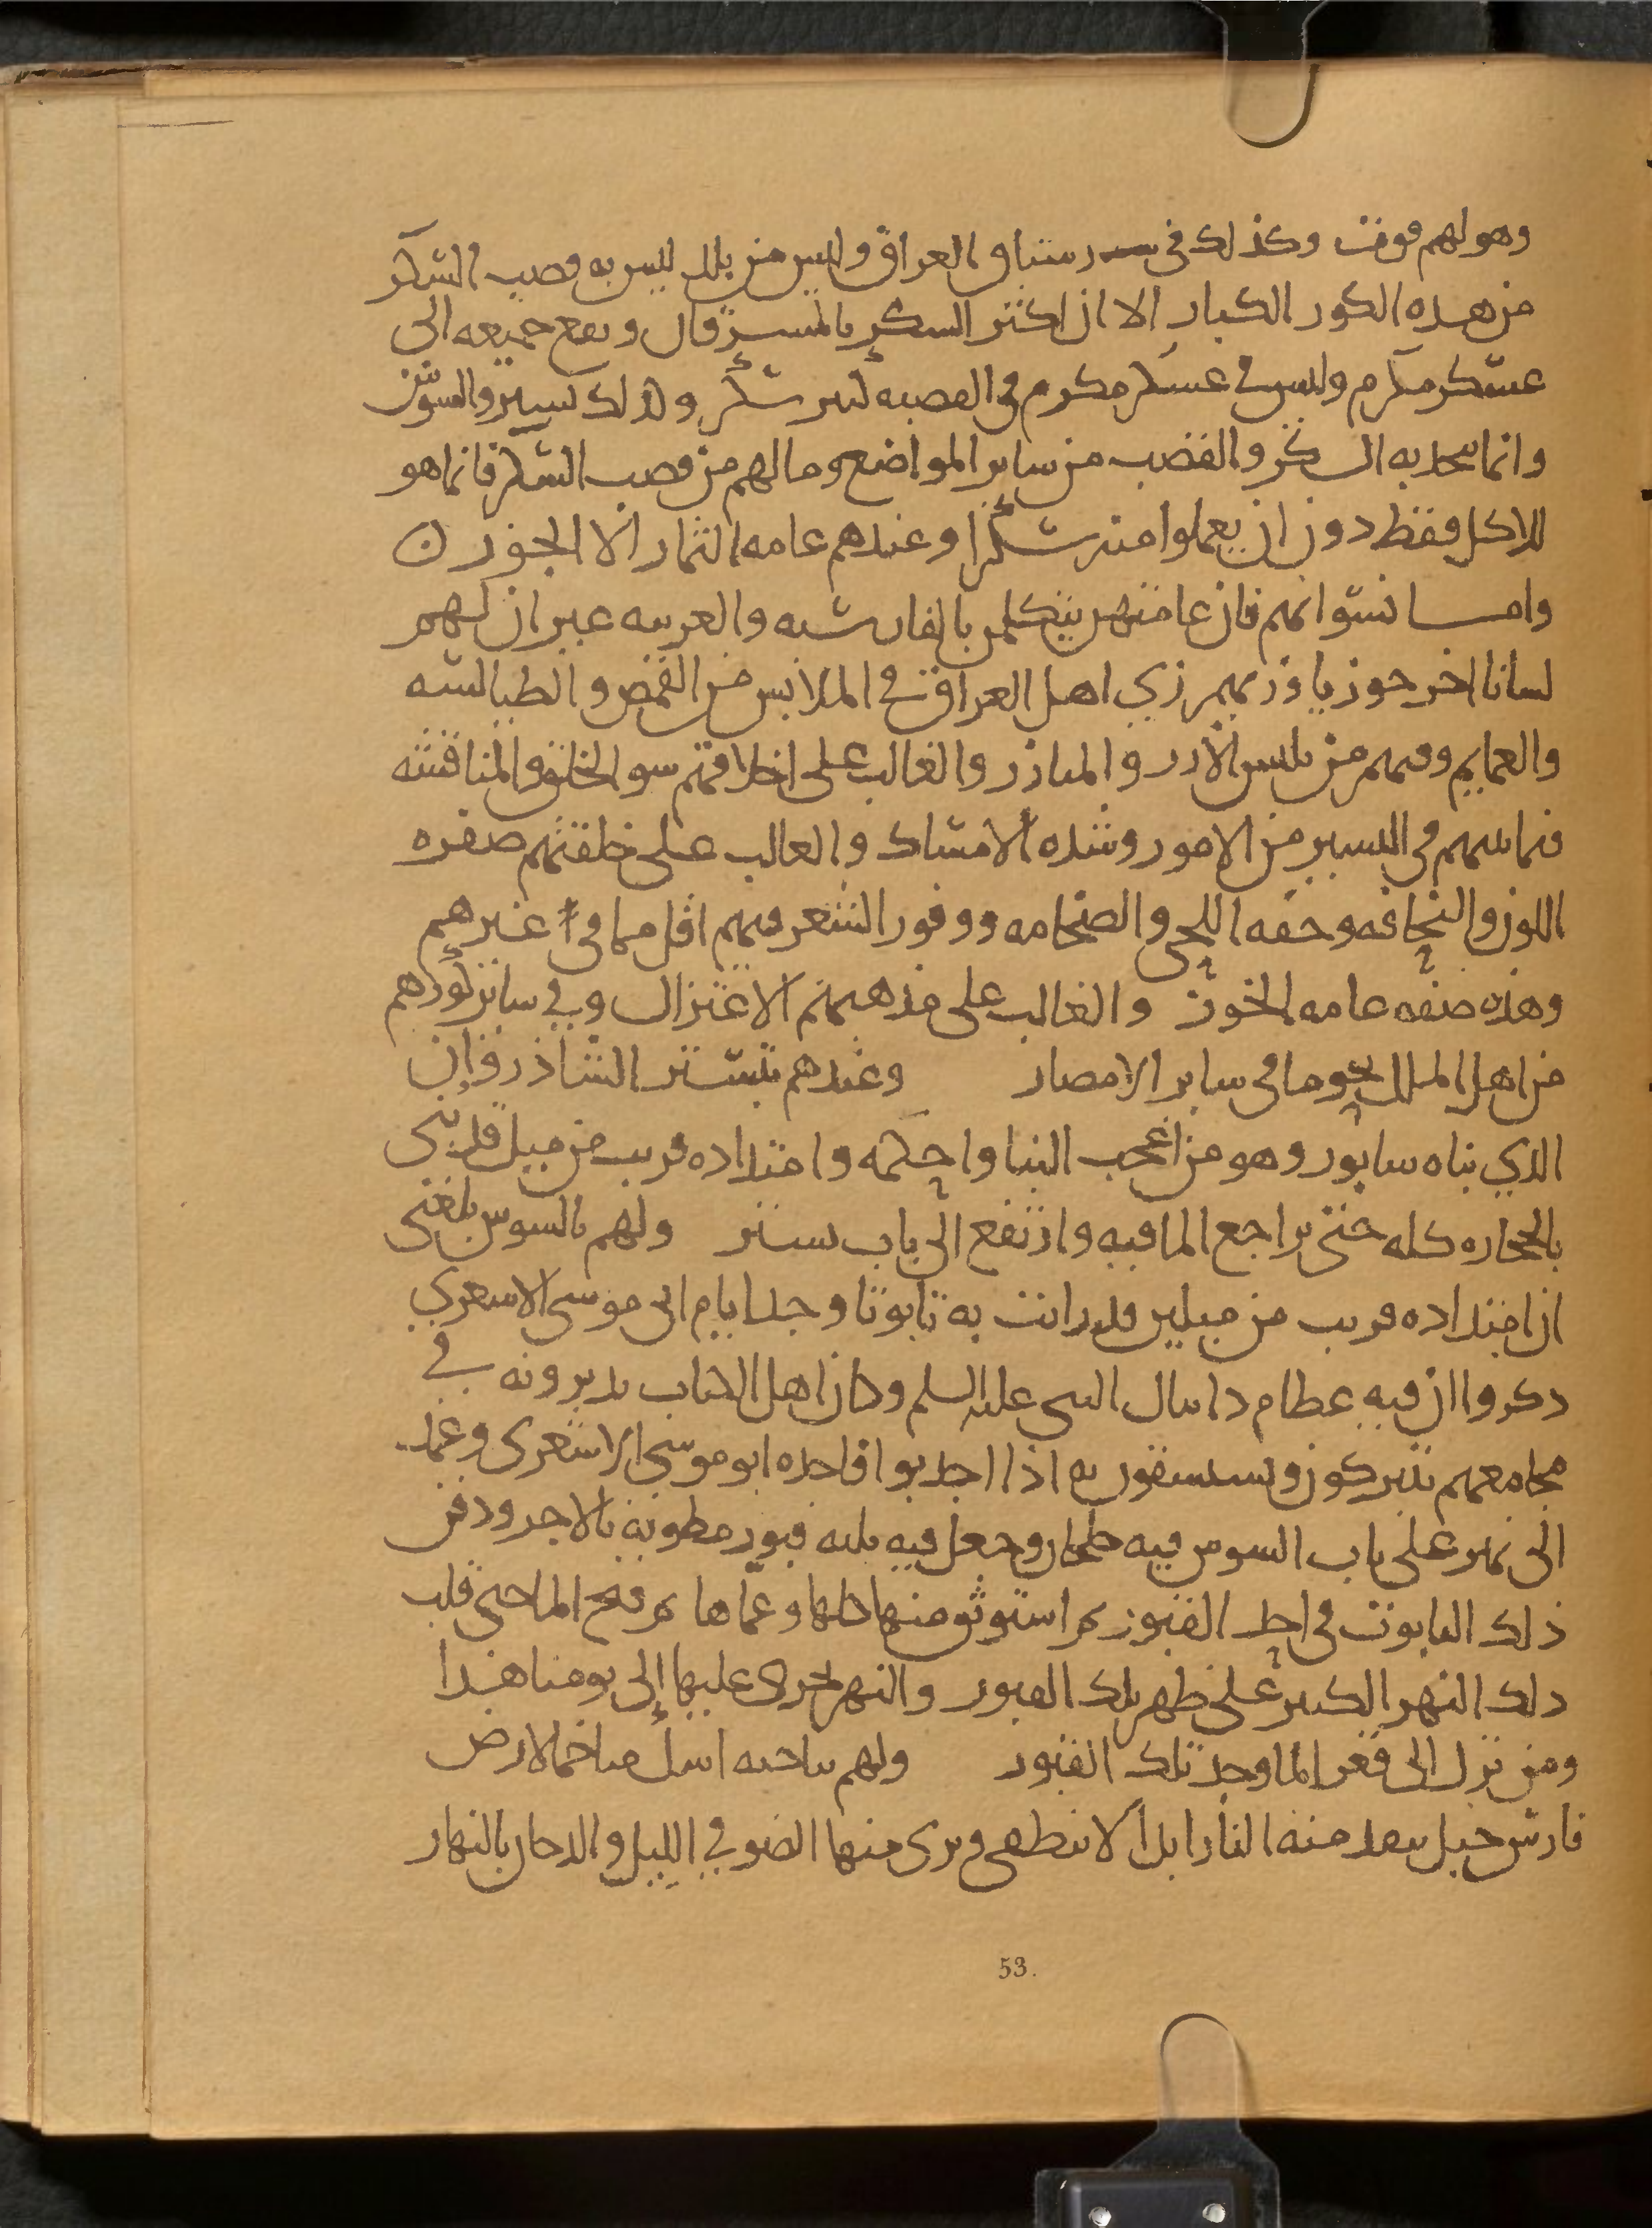 وهو لهم قوت وكذلك في رستاق العراق وليس من بلد ليس به قصب السكر
من هذه الكور الكبار الا ان اكثر السكر بالمسرقان ويقع جميعه الى
عسكر مكرم وليس في عسكر مكرم في القصبه كبير سكر وكذلك تستر والسوس
وانما يتخذ به السكر والقصب من ساير المواضع وما لهم من قصب السكر فانما هو
للاكل فقط دون ان يعملوا منه سكرا وعندهم عامه الثمار الا الجوز ن
وامـــا لسانهم فان عامتهم يتكلمن بالفارسيه والعربيه غير ان لهم
لسانا اخر خوزيا وزيهم زي اهل العراق في الملابس من القمص والطيالسه
والعمايم وفيهم من يلبس الازر والميازر والغالب على اخلاقهم سو الخلق والمنافسه
فيما بينهم في اليسير من الامور وشده الامساك والغالب على خلقتهم صفره
اللون والنحافه وخفه اللحى والضخامه ووفور الشعر فيهم اقل مما في غيرهم
وهذه صفه عامه الخوز والغالب على مذهبهم الاعتزال وفي ساير كورهم
من اهل الملل نحو ما في ساير الامصار وعندهم بتستر الشاذروان
الذي بناه سابور وهو من اعجب البنا واحكمه وامتداده قريب من ميل قد بنى
بالحجاره كله حتى تراجع الما فيه وارتفع الى باب تستر ولهم بالسوس بلغنى
ان امتداده قريب من ميلين قد رانت به تابوتا وجد ايام ابى موسى الاشعري
ذكروا ان فيه عظام دانيال النبي عليه السلم وكان اهل الكتاب يديرونه في
مجامعهم يتبركون ويستسقون به اذا اجدبوا فاخذه ابو موسى الاشعرى وعمد
الى نهر على باب السوس فيه خليجا وجعل فيه ثلثه قبور مطويه بالاجر ودفن
ذلك التابوت في احد القبور ثم استوثق منها كلها وعماها ثم فتح الما حتى قلب
ذلك النهر الكبير على ظهر تلك القبور والنهر يجرى عليها إلى يومنا هذا
ومن نزل الى قعر الما وجد تلك القبور ولهم بناحيه اسك متاخما لارض
فارس جبل يتقد منه النار ابدا لا تنطفى ويرى منها الضو في الليل والدخان بالنهار
53.